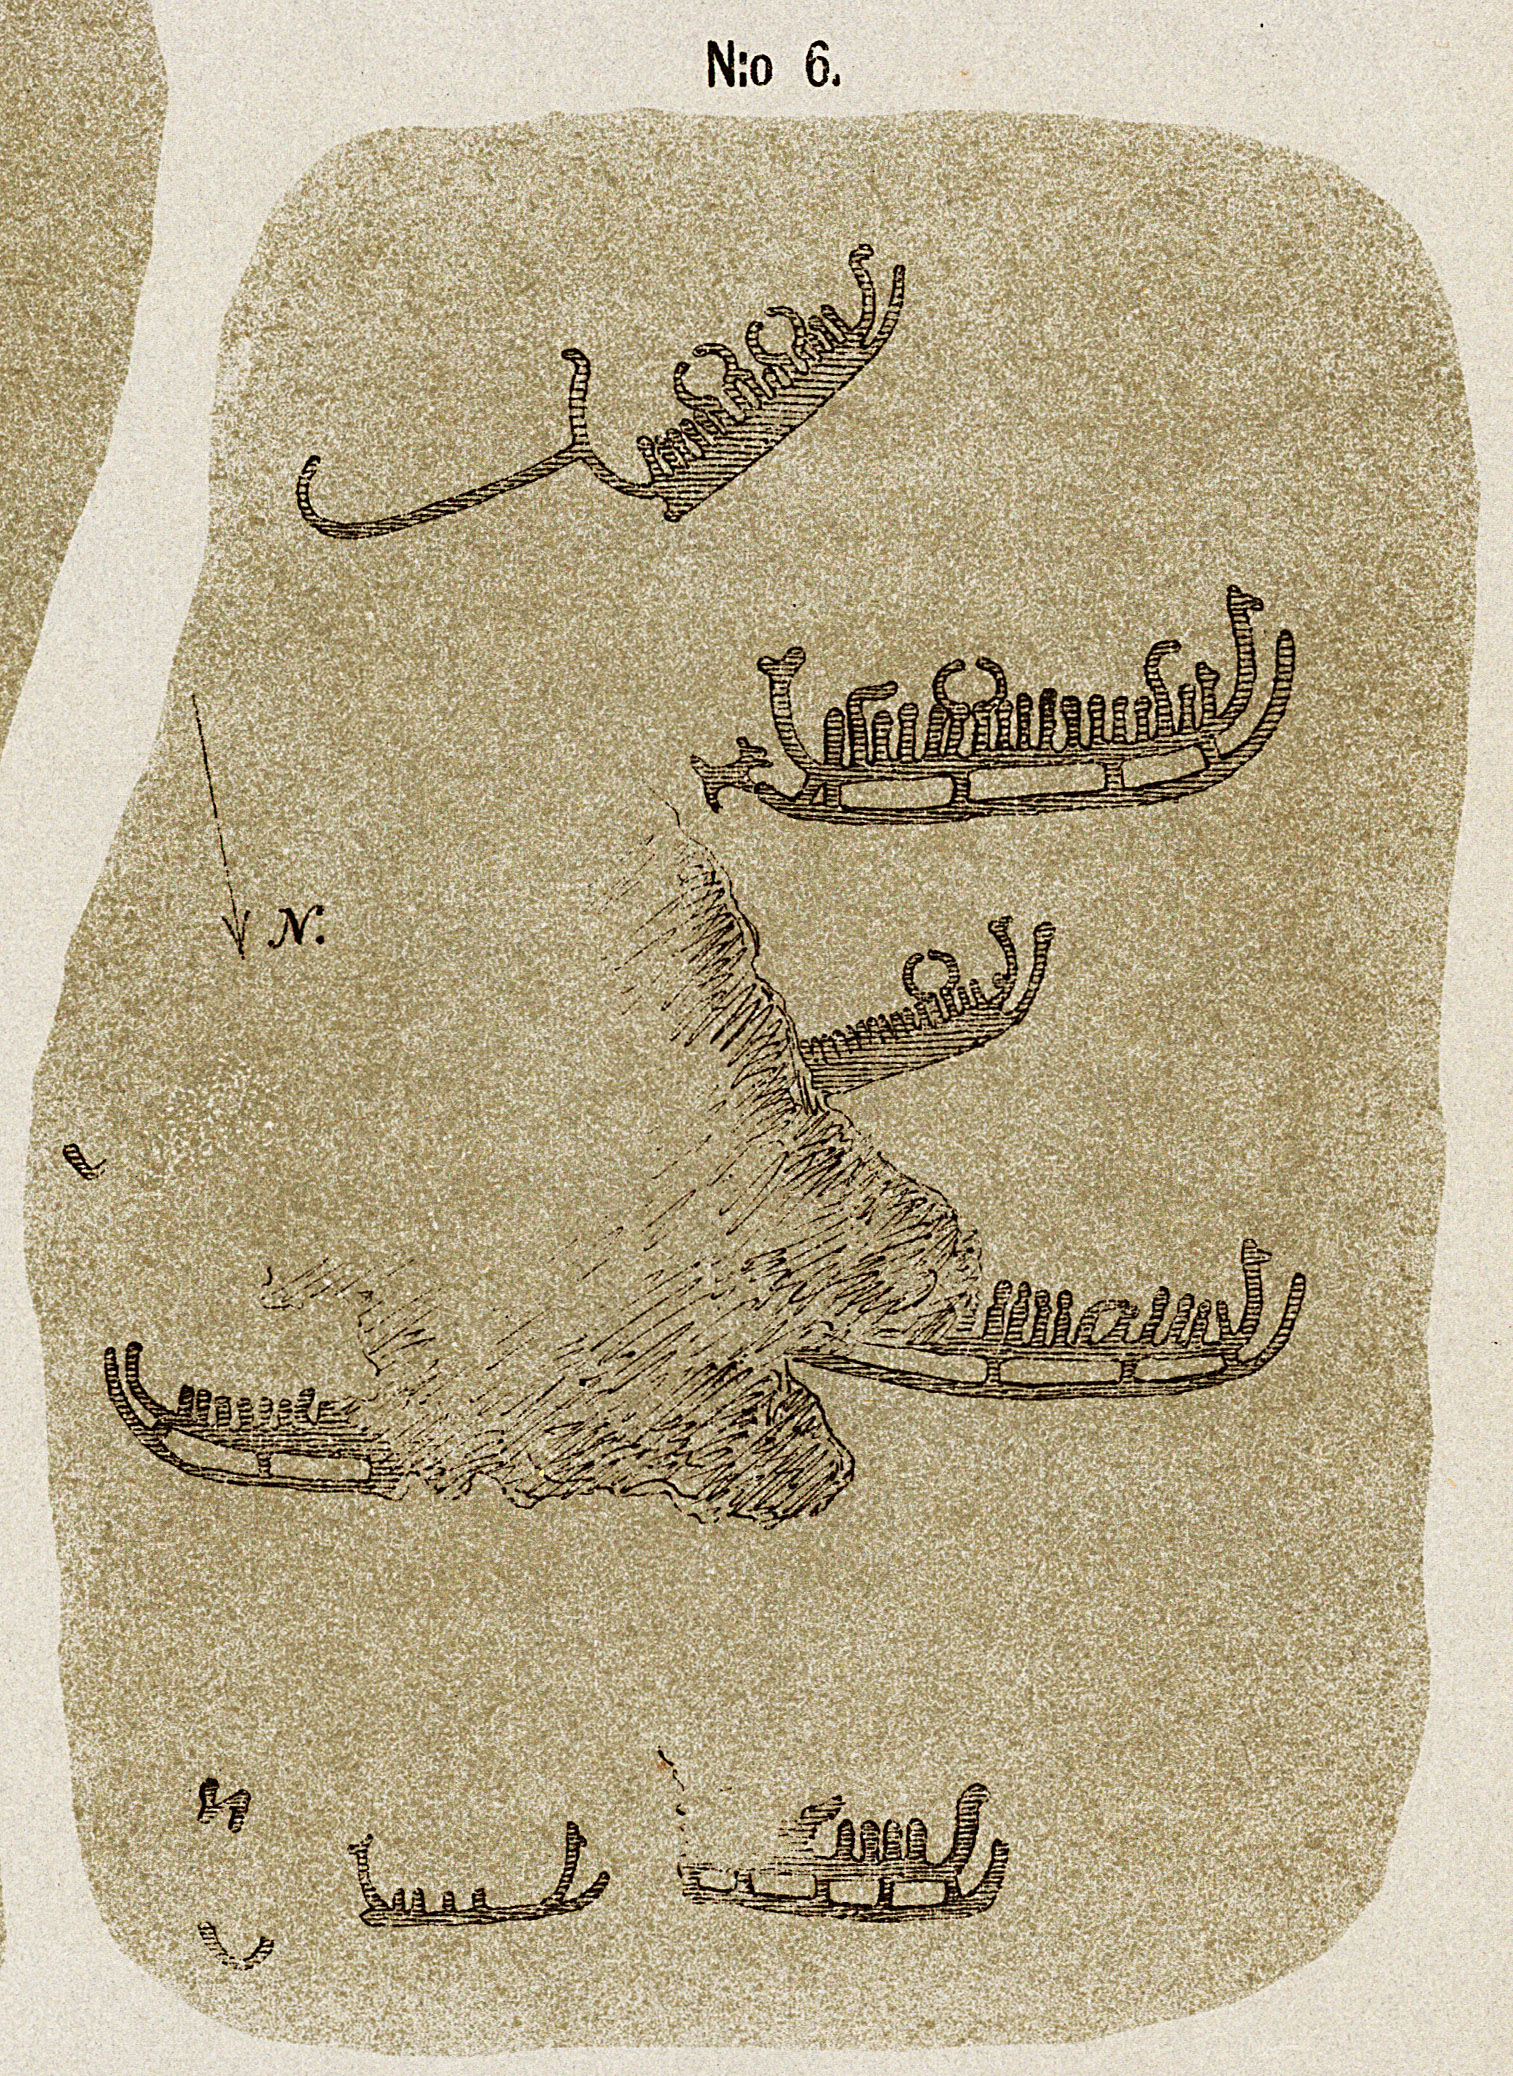 N:o 6.
N.